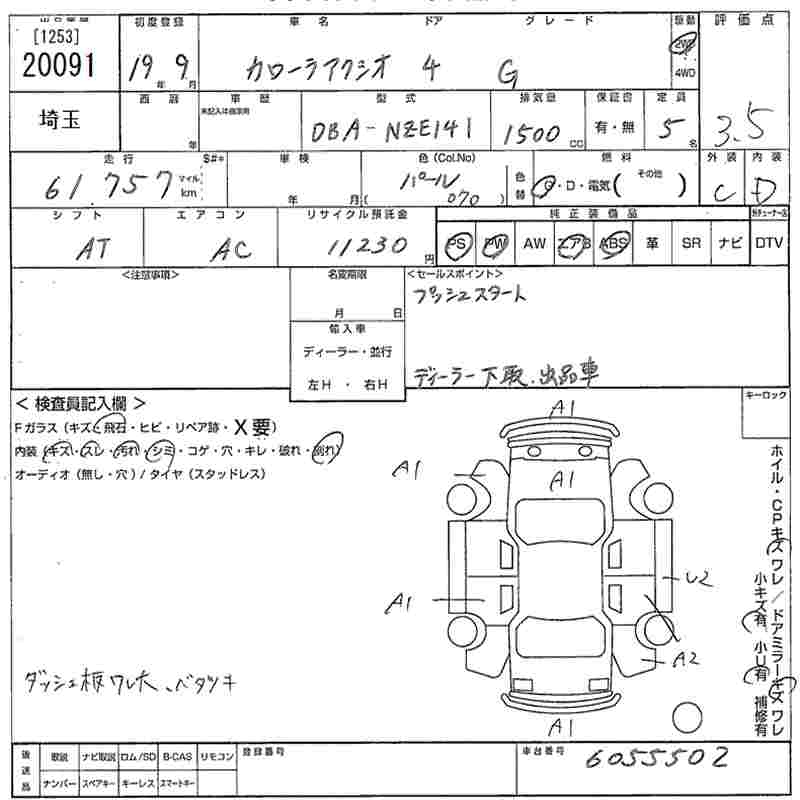 出品番号 初度登録 車名 ドア グレード 駆動 評価点
[1253]
20091 19年 9月 カローラアクシオ 4 G 2WD
4WD
埼玉 西暦 年 車歴 未記入は自家用 型式 排気量 保証書 定員
DBA-NZE141 1500cc 有・無 5名 3.5
走行 S#* 車検 色(Col.No) 色替 燃料 外装 内装
61,757 マイル km 年 月 パール (070) G・D・電気( その他 ) C D
シフト エアコン リサイクル預託金 純正装備品
AT AC 11230円 PS PW AW エアB ABS 革 SR ナビ DTV
<注意事項> 名変期限 <セールスポイント>
月 日 プッシュスタート
輸入車
ディーラー・並行
左H・右H ディーラー下取、出品車
<検査員記入欄> キーロック
Fガラス(キズ・飛石・ヒビ・リペア跡・X要)
内装(キズ・スレ・汚れ・シミ・コゲ・穴・キレ・破れ・剥れ)
オーディオ(無し・穴)/タイヤ(スタッドレス)
A1
A1 A1
A1 U2
A2
A1
ホイル・CPキズ ワレ/ドアミラーキズ ワレ
小キズ有 小U有 補修有
ダッシュ板ワレ大、ベタツキ
後送品 取説 ナビ取説 ロム/SD B-CAS リモコン 登録番号 車台番号
ナンバー スペアキー キーレス スマートキー 6055502